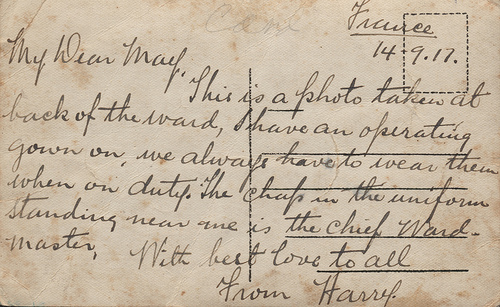 France
14-9.17.
My Dear May,
This is a photo taken at
back of the ward, I have an operating
gown on, we always have to wear them
when on duty. The chap in the uniform
standing near me is the chief Ward-
master,
With best love to all
From Harry.